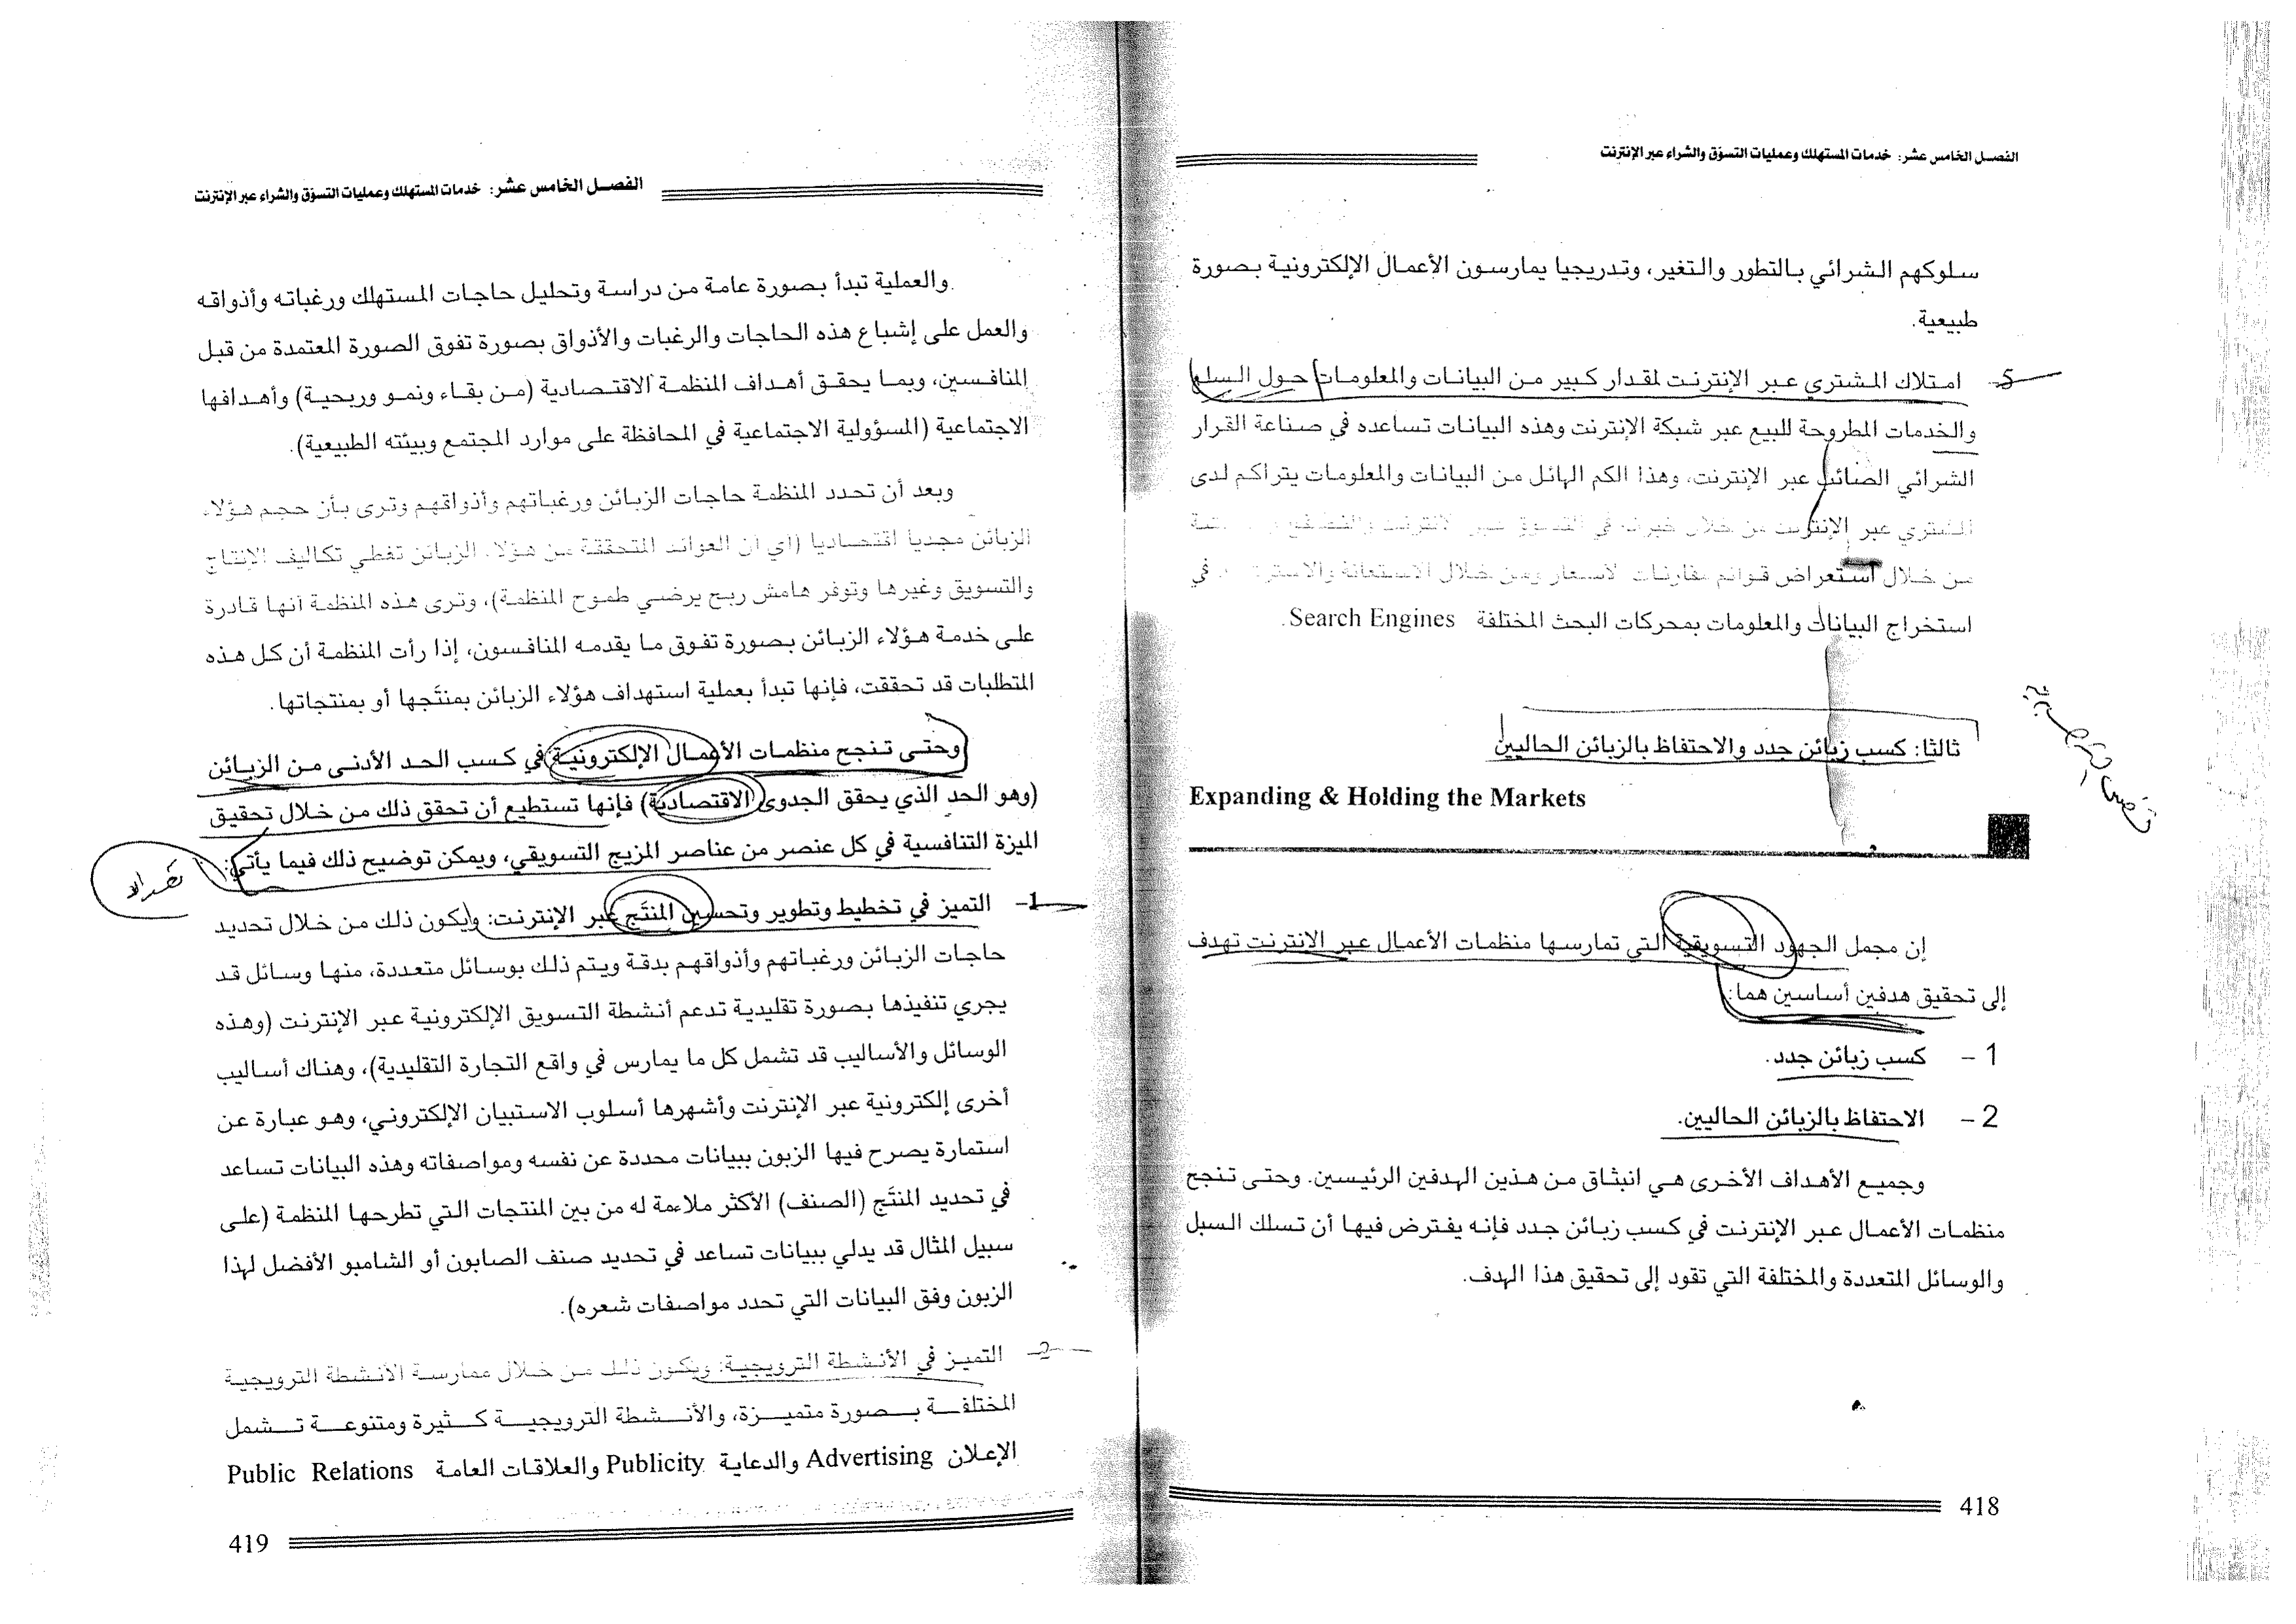 الفصل الخامس عشر: خدمات المستهلك وعمليات التسوّق والشراء عبر الإنترنت
سلوكهم الشرائي بالتطور والتغير، وتدريجيا يمارسون الأعمال الإلكترونية بصورة
طبيعية.
5- امتلاك المشتري عبر الإنترنت لمقدار كبير من البيانات والمعلومات حول السلع
والخدمات المطروحة للبيع عبر شبكة الإنترنت وهذه البيانات تساعده في صناعة القرار
الشرائي الصائب عبر الإنترنت، وهذا الكم الهائل من البيانات والمعلومات يتراكم لدى
المشتري عبر الإنترنت من خلال خبراته في التسوق عبر الانترنت
من خلال استعراض قوائم مقارنات الأسعار ومن خلال الاستعانة في
استخراج البيانات والمعلومات بمحركات البحث المختلفة Search Engines.
ثالثا: كسب زبائن جدد والاحتفاظ بالزبائن الحاليين
Expanding & Holding the Markets
إن مجمل الجهود التسويقية التي تمارسها منظمات الأعمال عبر الانترنت تهدف
إلى تحقيق هدفين أساسين هما:
1 - كسب زبائن جدد.
2 - الاحتفاظ بالزبائن الحاليين.
وجميع الأهداف الأخرى هي انبثاق من هذين الهدفين الرئيسين. وحتى تنجح
منظمات الأعمال عبر الإنترنت في كسب زبائن جدد فإنه يفترض فيها أن تسلك السبل
والوسائل المتعددة والمختلفة التي تقود إلى تحقيق هذا الهدف.
418
الفصل الخامس عشر: خدمات المستهلك وعمليات التسوّق والشراء عبر الإنترنت
والعملية تبدأ بصورة عامة من دراسة وتحليل حاجات المستهلك ورغباته وأذواقه
والعمل على إشباع هذه الحاجات والرغبات والأذواق بصورة تفوق الصورة المعتمدة من قبل
المنافسين، وبما يحقق أهداف المنظمة الاقتصادية (من بقاء ونمو وربحية) وأهدافها
الاجتماعية (المسؤولية الاجتماعية في المحافظة على موارد المجتمع وبيئته الطبيعية).
وبعد أن تحدد المنظمة حاجات الزبائن ورغباتهم وأذواقهم وترى بأن حجم هؤلاء
الزبائن مجديا اقتصاديا (أي أن العوائد المتحققة من هؤلاء الزبائن تغطي تكاليف الإنتاج
والتسويق وغيرها وتوفر هامش ربح يرضي طموح المنظمة)، وترى هذه المنظمة أنها قادرة
على خدمة هؤلاء الزبائن بصورة تفوق ما يقدمه المنافسون، إذا رأت المنظمة أن كل هذه
المتطلبات قد تحققت، فإنها تبدأ بعملية استهداف هؤلاء الزبائن بمنتَجها أو بمنتجاتها.
وحتى تنجح منظمات الأعمال الإلكترونية في كسب الحد الأدنى من الزبائن
(وهو الحد الذي يحقق الجدوى الاقتصادية) فإنها تستطيع أن تحقق ذلك من خلال تحقيق
الميزة التنافسية في كل عنصر من عناصر المزيج التسويقي، ويمكن توضيح ذلك فيما يأتي:
1- التميز في تخطيط وتطوير وتحسين المنتَج عبر الإنترنت: ويكون ذلك من خلال تحديد
حاجات الزبائن ورغباتهم وأذواقهم بدقة ويتم ذلك بوسائل متعددة، منها وسائل قد
يجري تنفيذها بصورة تقليدية تدعم أنشطة التسويق الإلكترونية عبر الإنترنت (وهذه
الوسائل والأساليب قد تشمل كل ما يمارس في واقع التجارة التقليدية)، وهناك أساليب
أخرى إلكترونية عبر الإنترنت وأشهرها أسلوب الاستبيان الإلكتروني، وهو عبارة عن
استمارة يصرح فيها الزبون ببيانات محددة عن نفسه ومواصفاته وهذه البيانات تساعد
في تحديد المنتَج (الصنف) الأكثر ملاءمة له من بين المنتجات التي تطرحها المنظمة (على
سبيل المثال قد يدلي ببيانات تساعد في تحديد صنف الصابون أو الشامبو الأفضل لهذا
الزبون وفق البيانات التي تحدد مواصفات شعره).
2- التميز في الأنشطة الترويجية: ويكون ذلك من خلال ممارسة الأنشطة الترويجية
المختلفة بصورة متميزة، والأنشطة الترويجية كثيرة ومتنوعة تشمل
الإعلان Advertising والدعاية Publicity والعلاقات العامة Public Relations
419